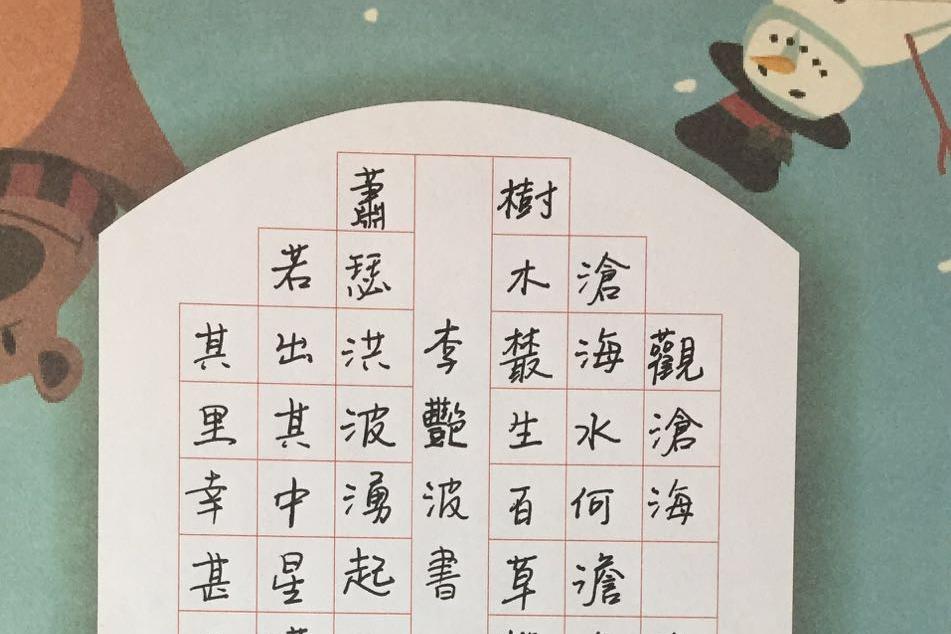 觀滄海
滄海水何澹
樹木叢生百草
李艷波書
蕭瑟洪波湧起
若出其中星
其里幸甚